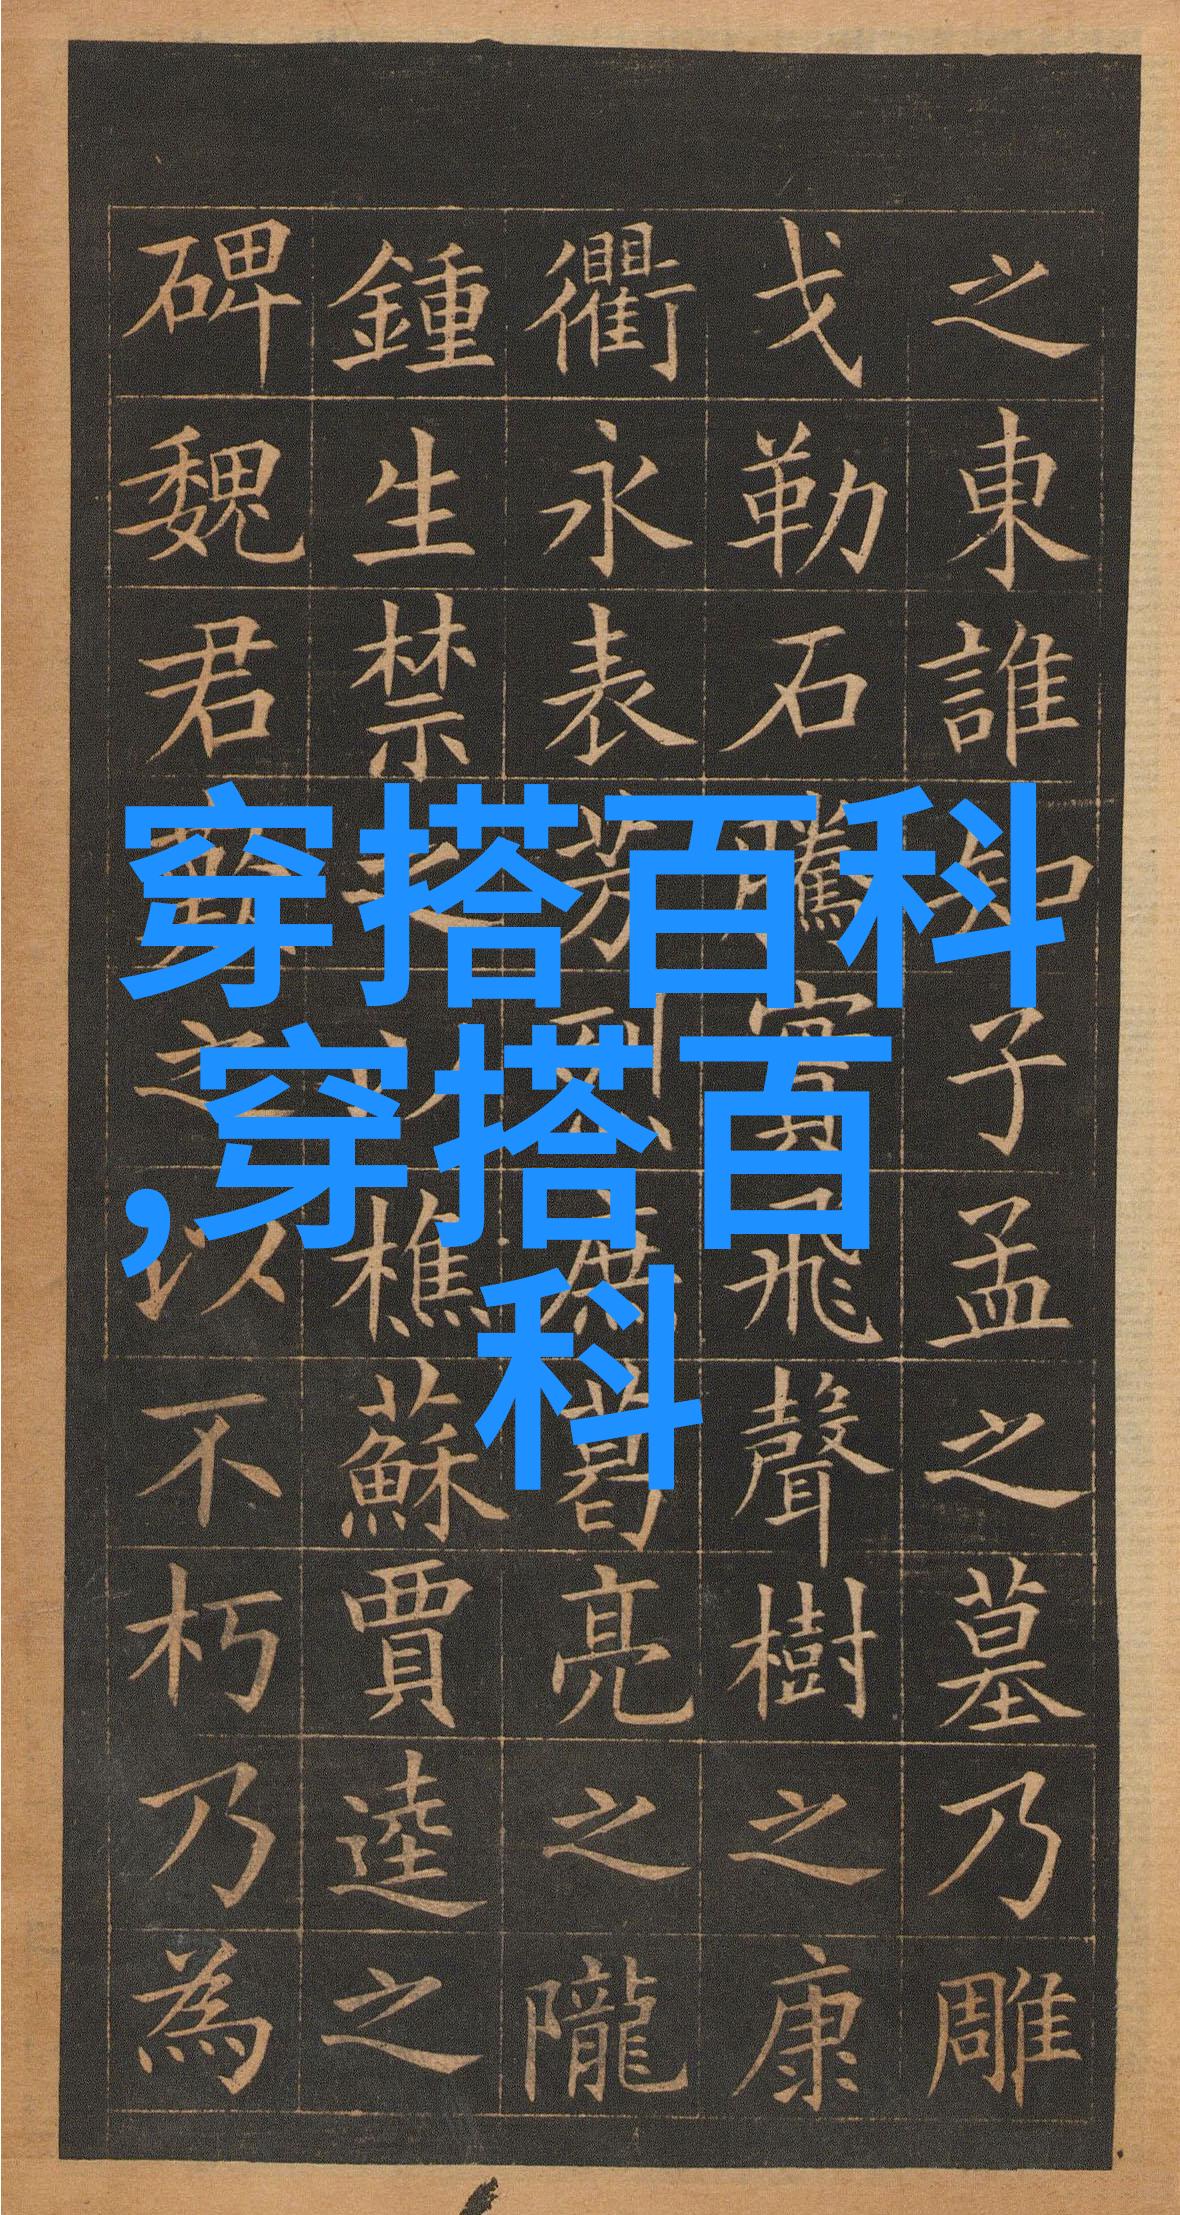 之東誰知子孟之墓乃雕
戈勒石騰實飛聲樹之康
衢永表芳烈庶葛亮之隴
鍾生禁之以樵蘇賈逵之
碑魏君之以不朽乃為
穿搭百科
,穿搭百
科